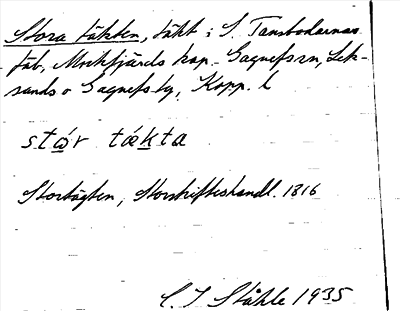 Stora täkten, täkt i S. Tansbodarnas
fäb, Mockfjärds kap. Gagnefs sn, Lek-
sands o Gagnefs tg, Kopp. l
stω̣r tækta
Stortägten, Storskifteshandl. 1816
C. I Ståhle 1935